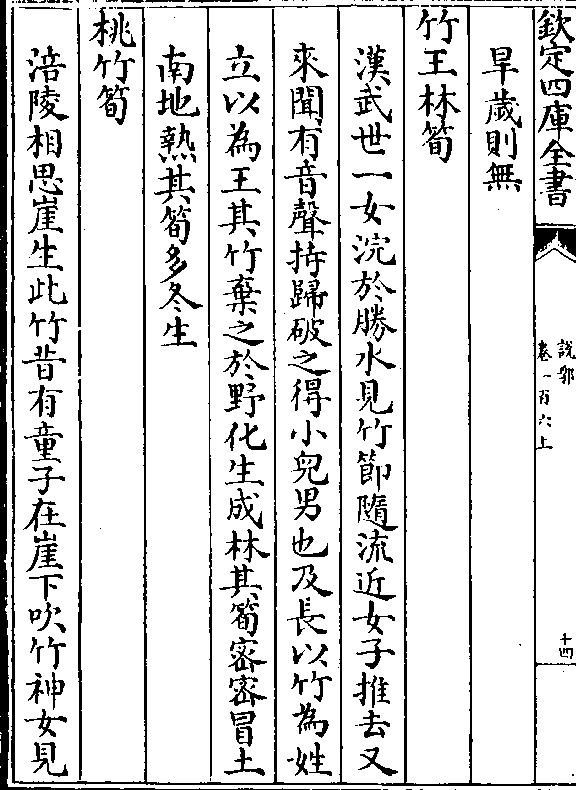 欽定四庫全書
說郛
卷一百六上
十四
旱歲則無
竹王林筍
漢武世一女浣於勝水見竹節隨流近女子推去又
來聞有音聲持歸破之得小兒男也及長以竹為姓
立以為王其竹棄之於野化生成林其筍密密冒土
南地熱其筍多冬生
桃竹筍
涪陵相思崖生此竹昔有童子在崖下吹竹神女見